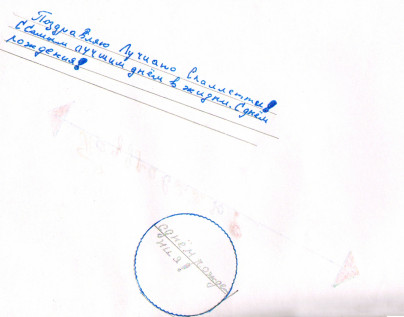 Поздравляю Лучиано Спаллетти!
С самым лучшим днём в жизни. С днём
рождения!
С днём рожде
ния!